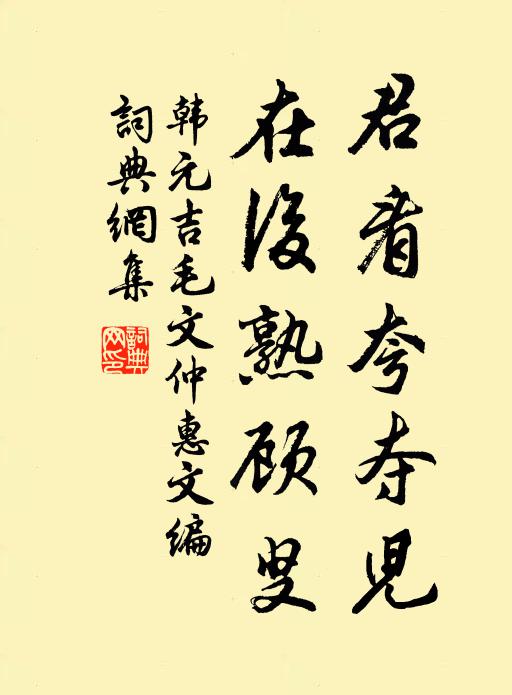 君看夸夺児
在後熟顾叟
韩元吉毛文仲惠文编
詞典網集
詞典网印